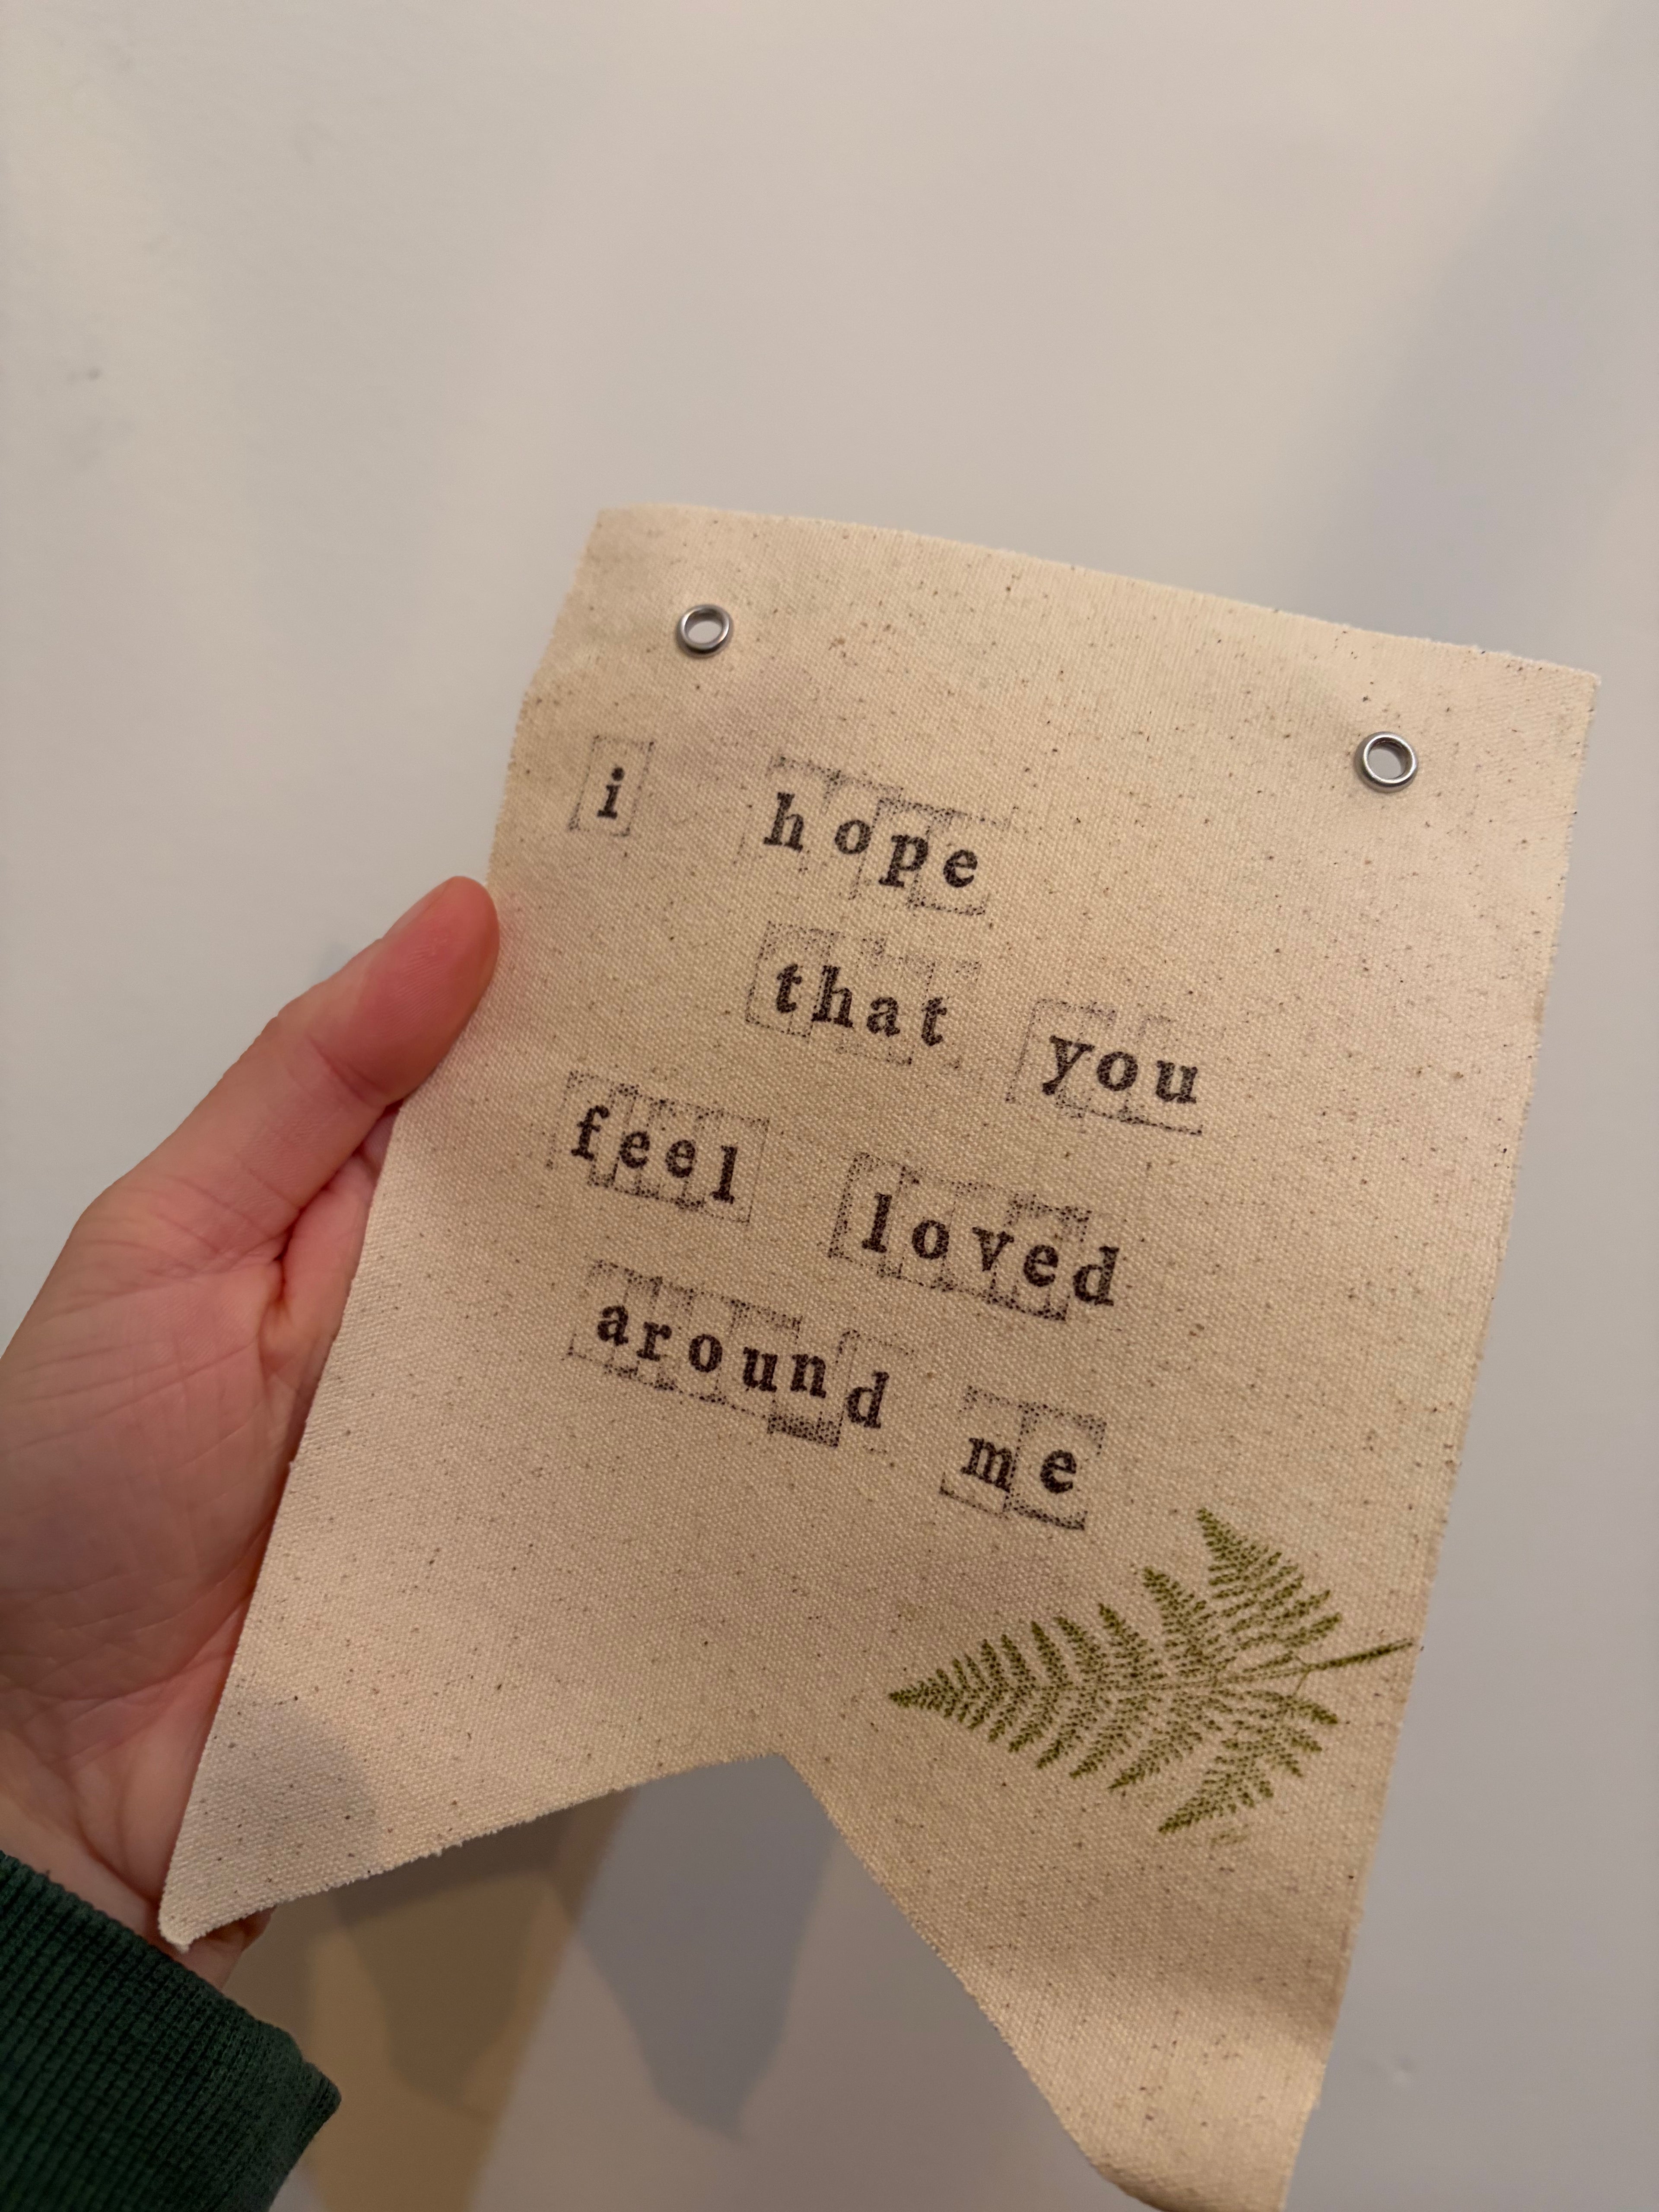 i hope
that you
feel loved
around me